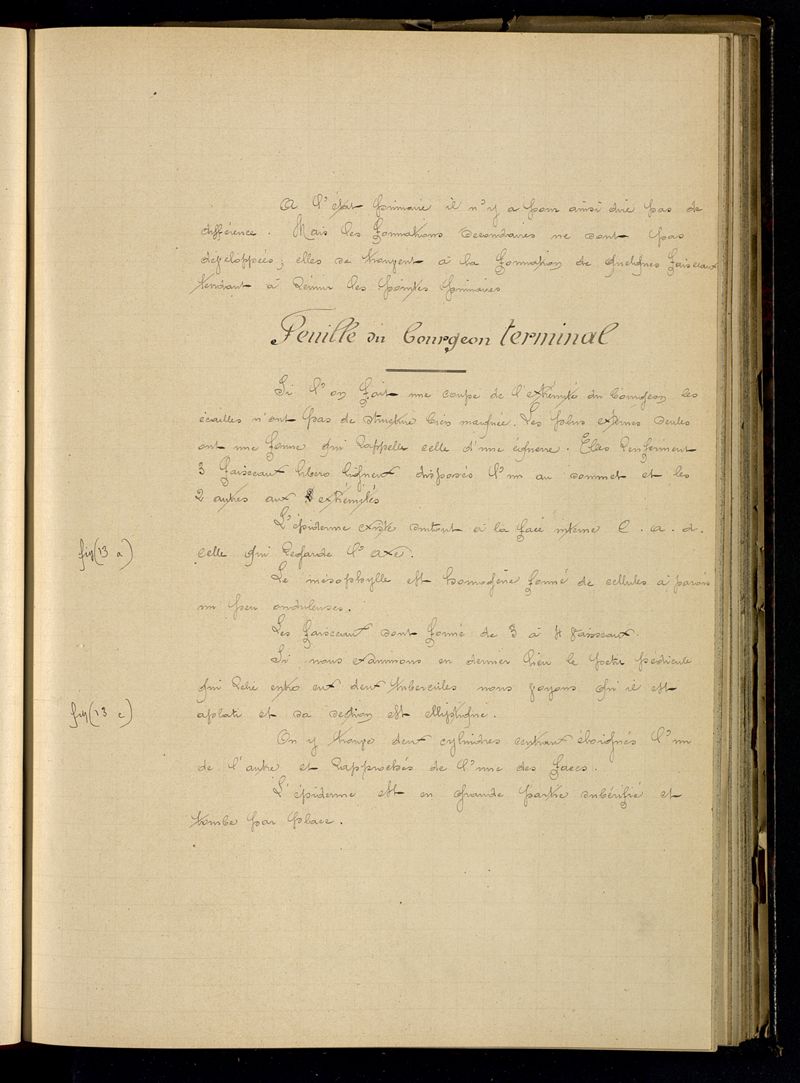 A l'état primaire il n'y a pour ainsi dire pas de
différence. Mais les formations secondaires ne sont pas
développées; elles se trouvent à la formation de quelques faisceaux
tendant à réunir les pointes primaires
Feuille du bourgeon terminal
Si l'on fait une coupe de l'extrémité du bourgeon les
écailles n'ont pas de structure bien marquée. Les plus externes seules
ont une forme qui rappelle celle d'une équerre. Elles renferment
3 faisceaux libero ligneux disposés l'un au sommet et les
2 autres aux 2 extrémités
L'épiderme existe surtout à la face interne C. a. d.
fig (13 a)
celle qui regarde l'axe.
Le mésophylle est homogène formé de cellules à parois
un peu onduleuses.
Les faisceaux sont formé de 3 à 4 vaisseaux.
Si nous examinons en dernier lieu le petit pédicule
qui relie entre eux deux tubercules nous voyons qu'il est
fig (13 c)
aplati et sa section est elliptique.
On y trouve deux cylindres centraux éloignés l'un
de l'autre et rapprochés de l'une des faces.
L'épiderme est en grande partie subérifié et
tombe par place.